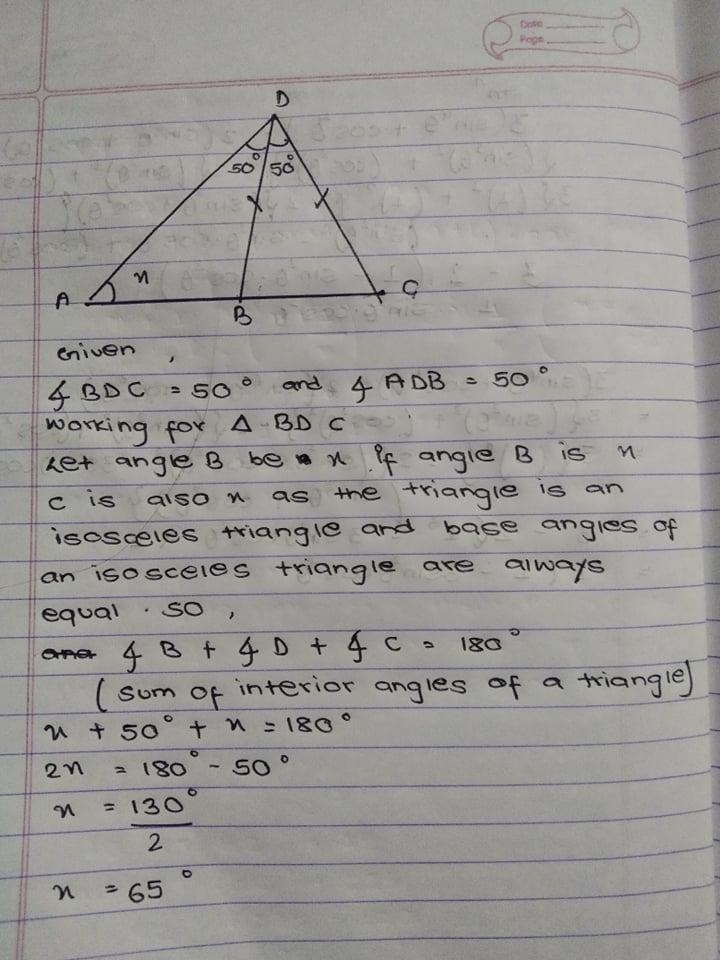 Date
Page
D
50° 50°
x
A
B
C
Given,
∡ BDC = 50° and ∡ ADB = 50°
Working for Δ BDC
Let angle B be x. If angle B is x
C is also x as the triangle is an
isosceles triangle and base angles of
an isosceles triangle are always
equal. SO,
∡ B + ∡ D + ∡ C = 180°
(sum of interior angles of a triangle)
x + 50° + x = 180°
2x = 180° - 50°
x = 130°
2
x = 65°